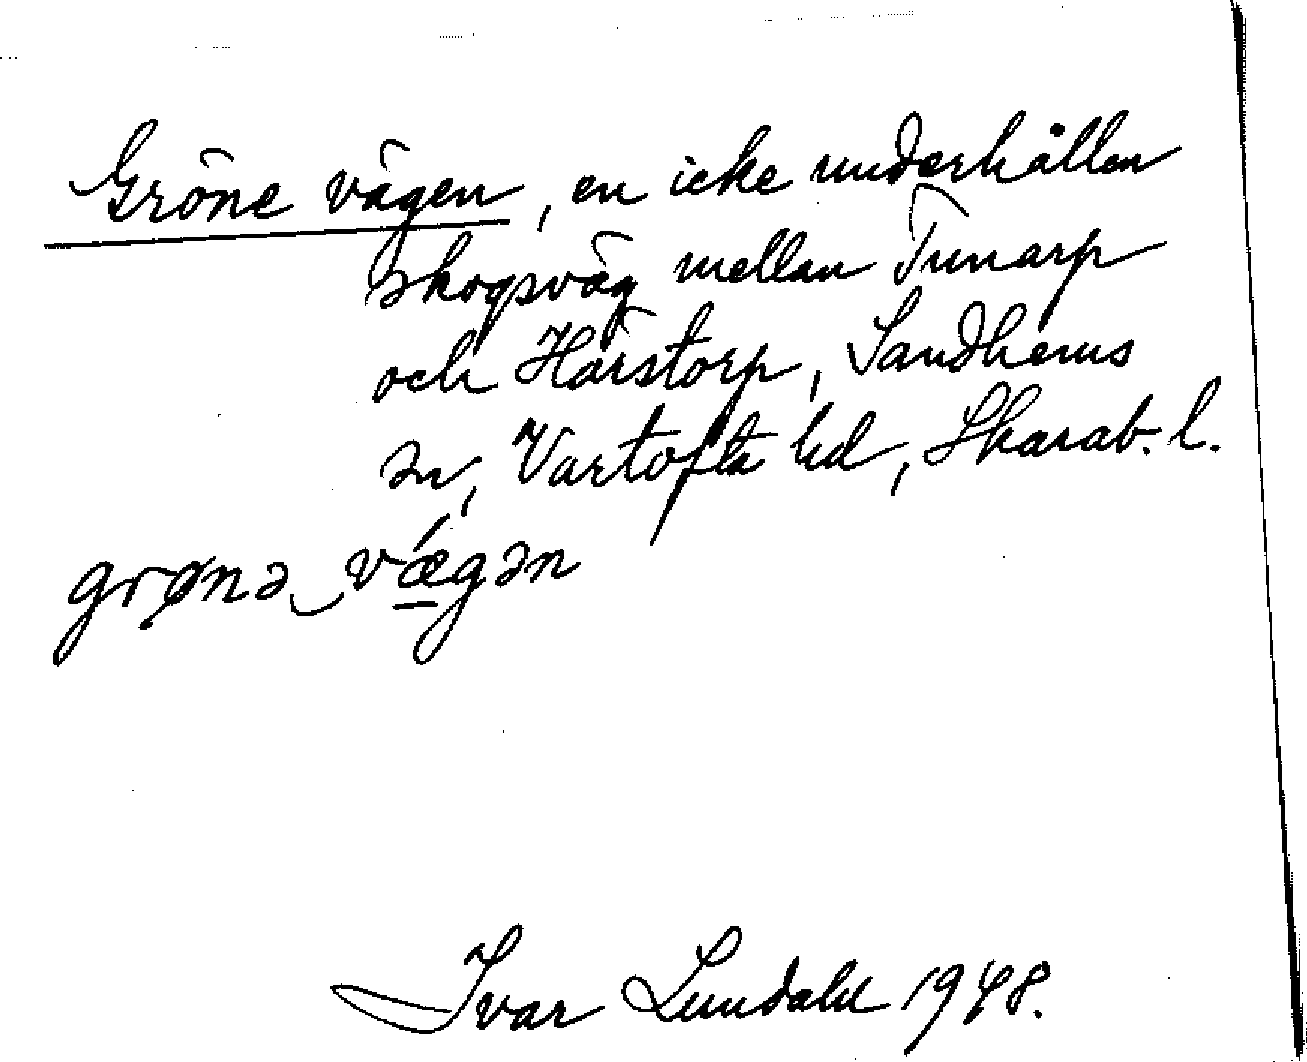 Gröne vägen, en icke underhållen
skogsväg mellan Tunarp
och Härstorp, Sandhems
sn, Vartofta hd, Skarab. l.
grønə vǽgən
Ivar Lundahl 1948.